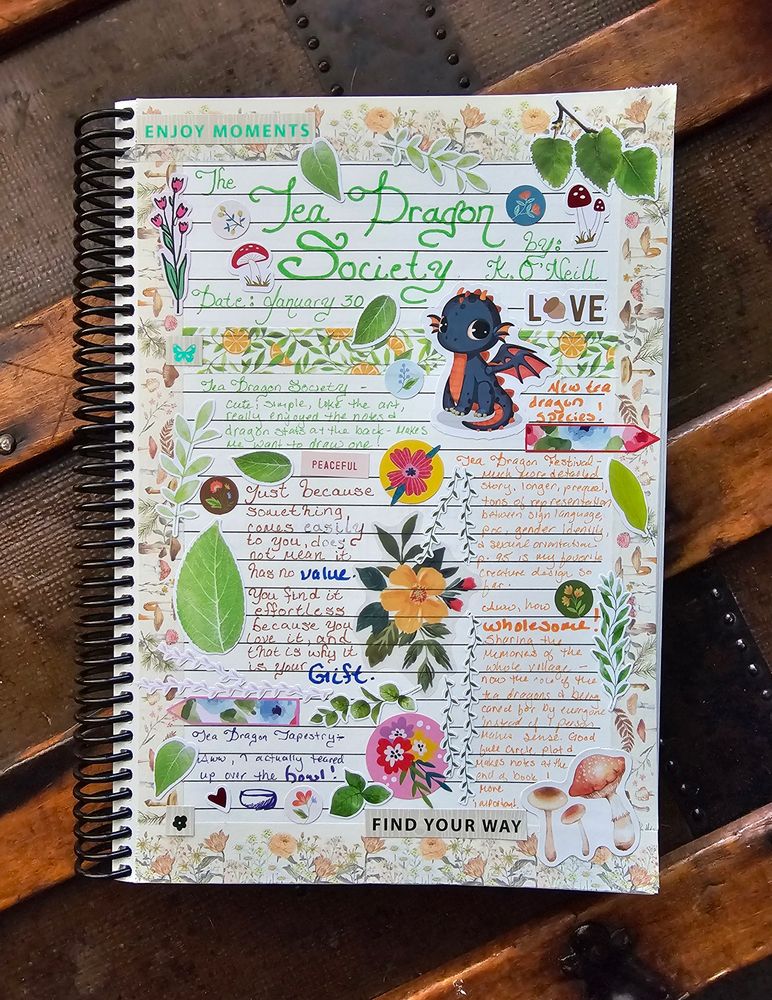 ENJOY MOMENTS
The
Tea Dragon
Society
by:
K. O'Neill
Date: January 30
LOVE
Tea Dragon Society -
cute, simple, like the art,
really enjoyed the notes &
dragon stats at the back - Makes
me want to draw one!
New tea
dragon
species!
PEACEFUL
Just because
something
comes easily
to you, does
not mean it
has no value.
You find it
effortless
because you
love it, and
that is why it
is your Gift.
Tea Dragon Festival -
Much more detailed
story, longer,
tons of representation
between sign language,
poc, gender identity,
& sexual orientation
p. 95 is my favorite
creature design so
far.
Aww, how
wholesome!
Sharing the
memories of the
whole village -
now the role of the
tea dragons & being
cared for by everyone
instead of 1 person
makes sense. Good
full circle, plot &
makes notes at the
end a book!
more
important
Tea Dragon Tapestry -
Aww, I actually teared
up over the bowl!
FIND YOUR WAY